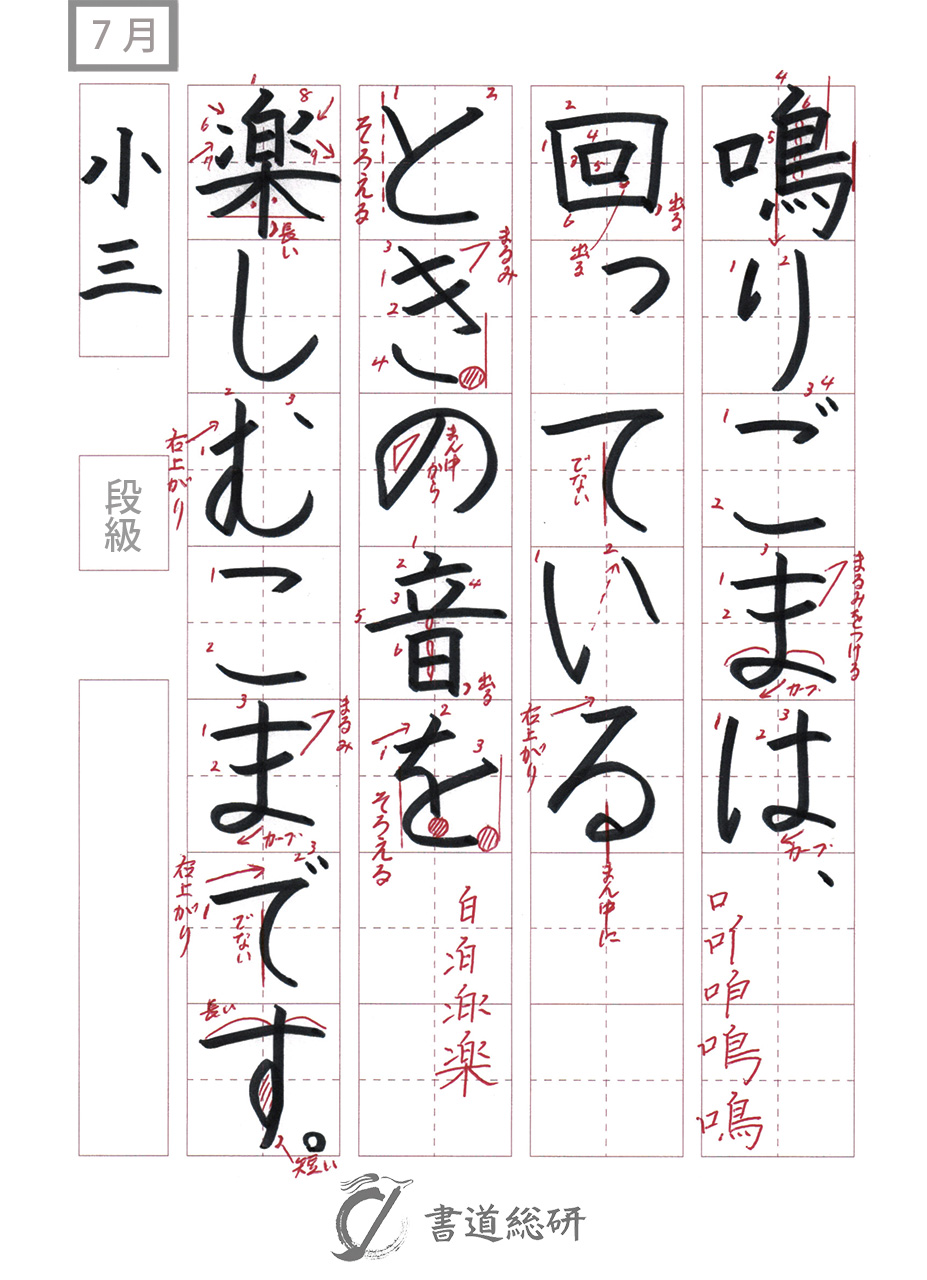 7月
鳴りごまは、
回っている
ときの音を
楽しむこま
です。
小三
段級
まるみをつける
カーブ
カーブ
口 叩 咱 鳴 鳴
出る
出る
でない
右上がり
まん中に
そろえる
まるみ
まん中から
出る
そろえる
白 泊 楽
長い
右上がり
まるみ
カーブ
右上がり
でない
長い
短い
書道総研